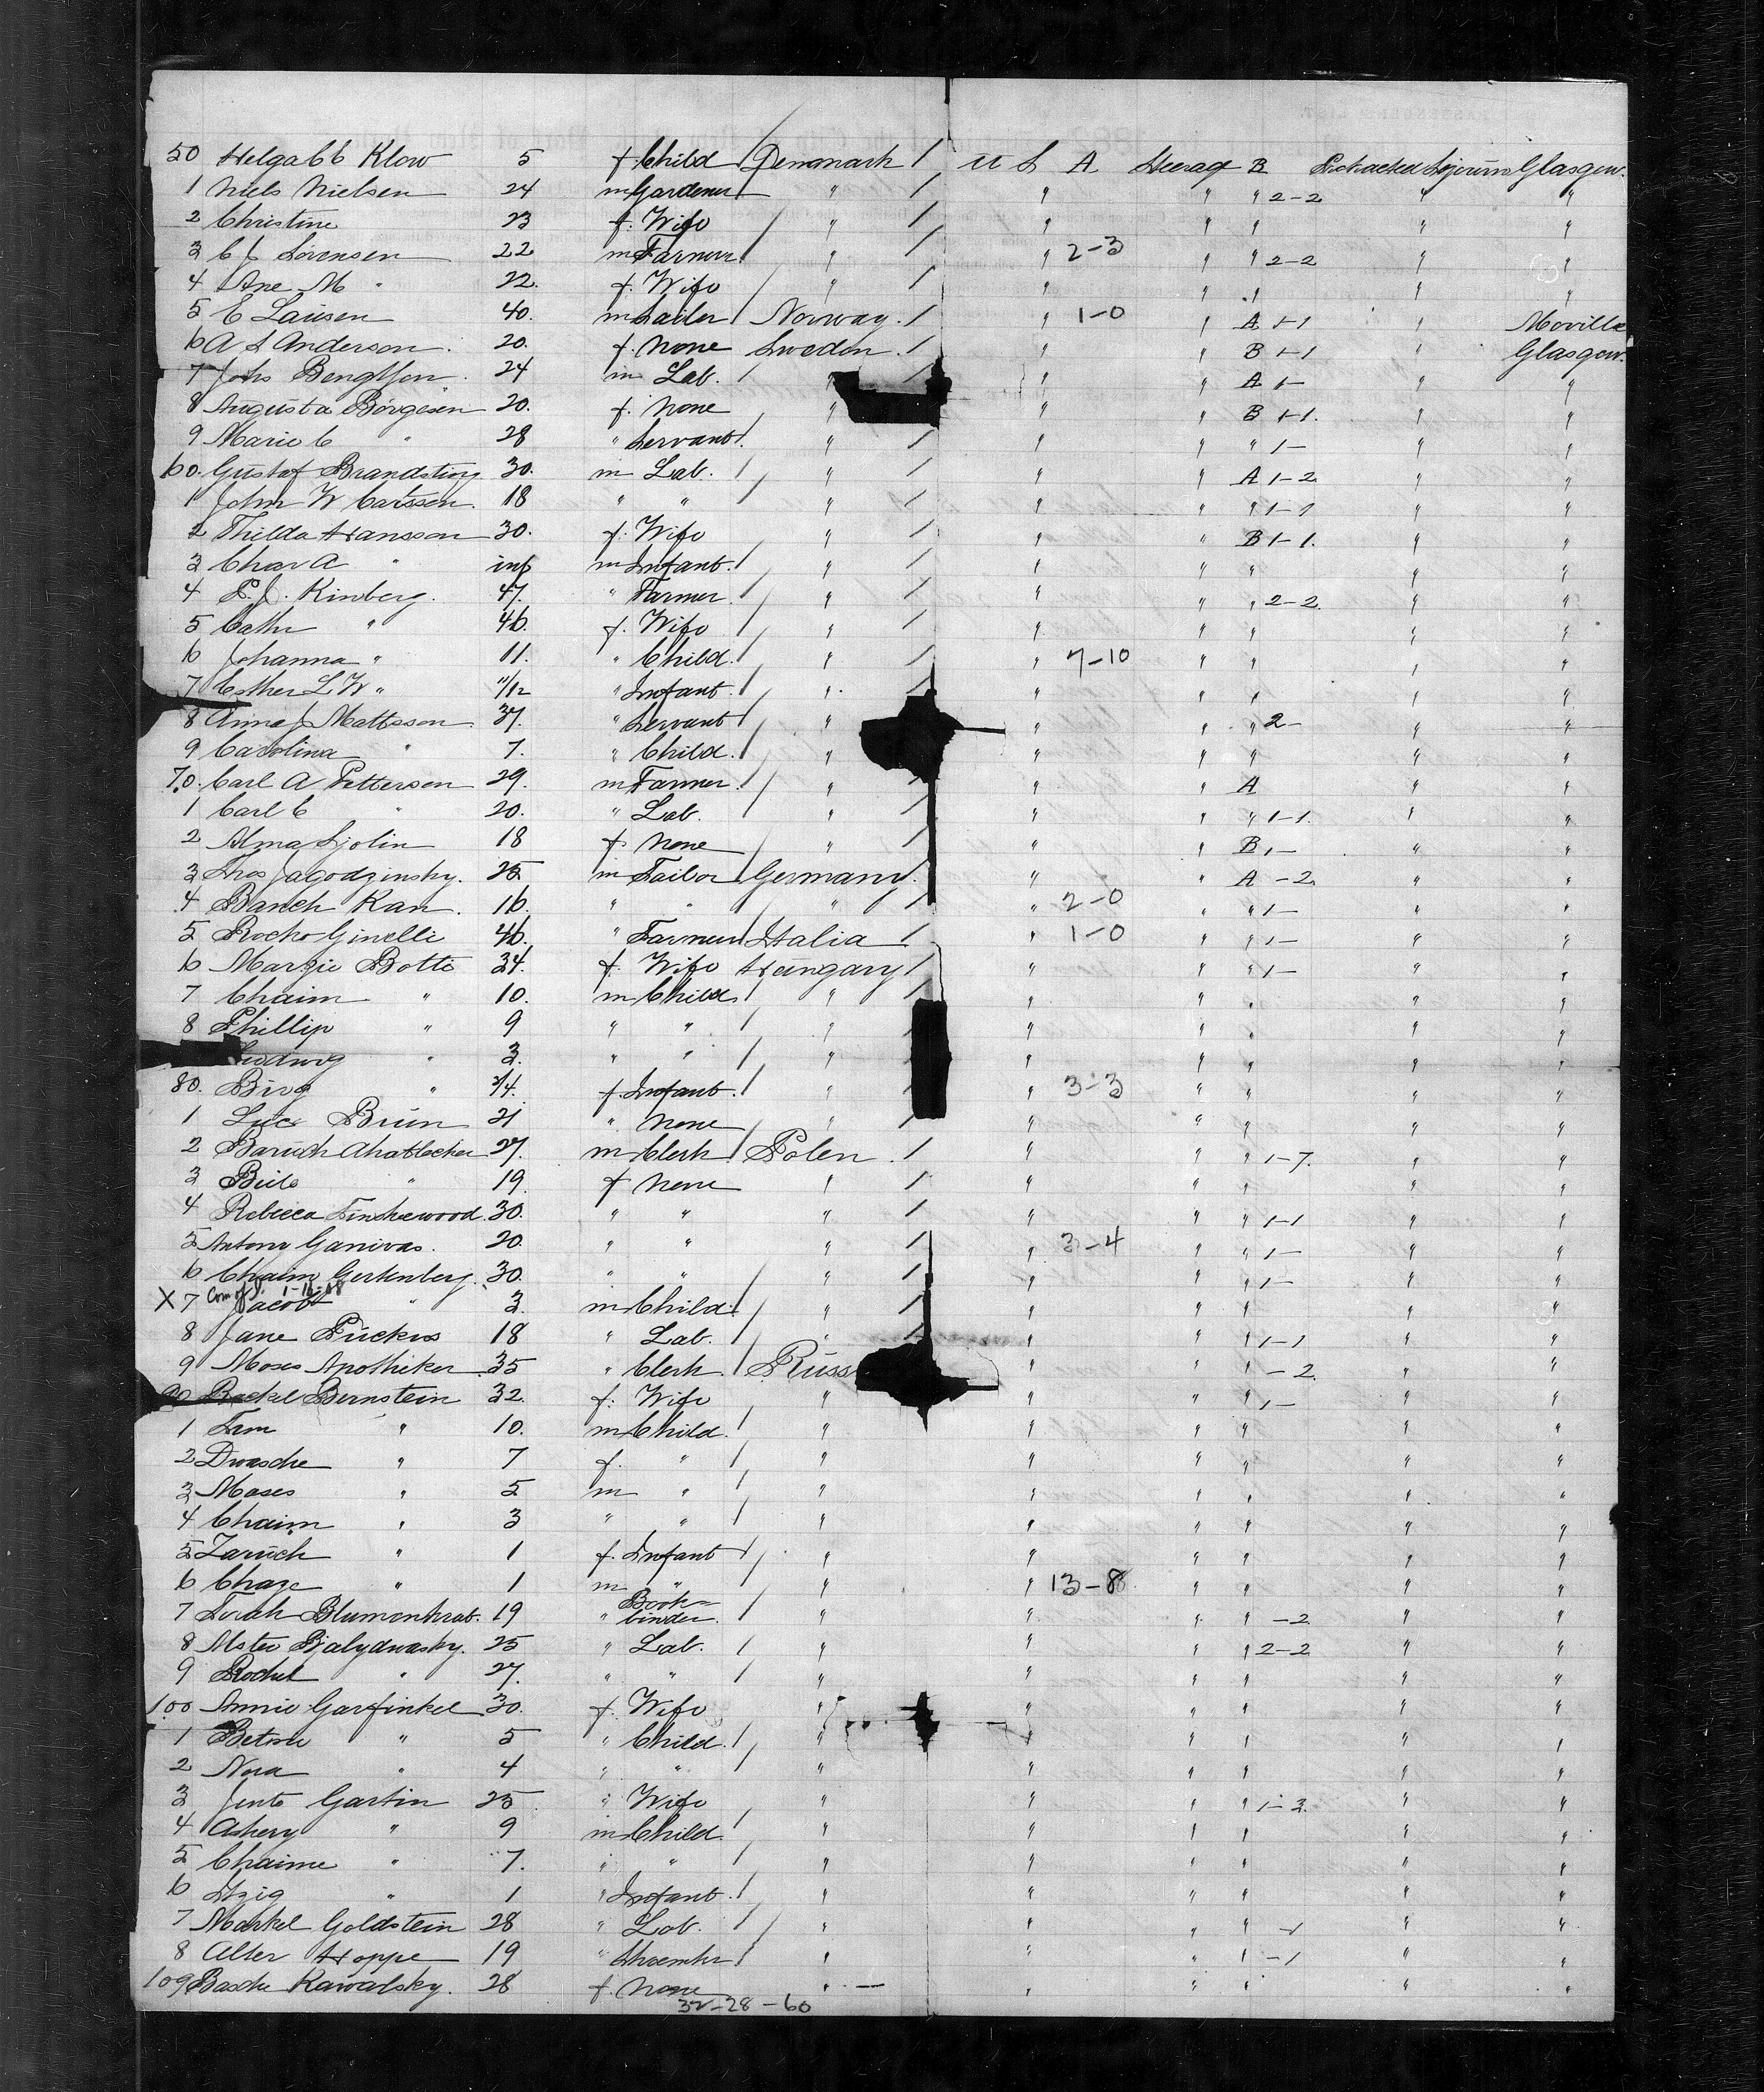 50 Helga C C Klow 5 f. Child / Denmark / U S A Steerage B Protracted Sojourn Glasgow.
1 Niels Nielsen 24 m Gardener " / " " " 2-2 " "
2 Christine 23 f. Wife / " / " " " " "
3 C J Sorensen 22 m Farmer / " / " 2-3 " " 2-2 " "
4 Ane M " 22. f. Wife / " / " " " " "
5 E Lausen 40. m Sailor / Norway. / " 1-0 " A 1-1 " Moville
6 A S Anderson 20. f. None Sweden. / " " B 1-1 " Glasgow.
7 Johs Bengtson 24 m Lab. / " / " " A 1- " "
8 Augusta Borgesen 20. f. None " " " B 1-1. " "
9 Marie C " 28 " Servant / " / " " " 1- " "
60. Gustaf Brandsting 30. m Lab. / " / " " A 1-2 " "
1 John W Carlsson 18 " " / " / " " " 1-1 " "
2 Thilda Hansson 30. f. Wife " / " " B 1-1. " "
3 Char A " inf m Infant. / " / " " " " "
4 P. J. Kinberg. 47. " Farmer. / " / " " " 2-2. " "
5 Cathr " 46. f. Wife / " / " " " " "
6 Johanna " 11. " Child. / " / " 7-10 " " " "
7 Esther L W " 11/12 " Infant. / " / " " " " "
8 Anna J Mattsson 37. " Servant / " " " " 2- " "
9 Carolina " 7. " Child. / " " " " " "
70. Carl A Petterson 29. m Farmer. / " / " " A " "
1 Carl C " 20. " Lab. / " / " " " 1-1. " "
2 Alma Sjolin 18 f. None / " / " " B 1- " "
3 Jagodzinsky. 25 m Tailor / Germany. / " " A -2 " "
4 Baruch Kan. 16. " " " / " 2-0 " " 1- " "
5 Rocho Ginelli 46. " Farmer / Italia / " 1-0 " " 1- " "
6 Margie Botti 34. f. Wife Hungary / " " " 1- " "
7 Chaim " 10. m Child / " / " " " " "
8 Phillip " 9 " " / " / " " " " "
Ludwig " 3. " " / " " " " " "
80. " 3/4. f. Infant. / " " 3-3 " " " "
1 Brun 21 " None " / " " " " "
2 Baruch 27. m Clerk / Polen. / " " " 1-7. " "
3 Beile " 19. f None " / " " " " "
4 Rebecca 30. " " " / " " " 1-1 " "
5 Antony Ganivas. 20. " " " / " 3-4 " " 1- " "
6 Chaim Gerkenberg. 30. " " " / " " " 1- " "
X 7 Jacob " 3. m Child / " / " " " " "
8 Jane Puckus 18 " Lab. / " / " " " 1-1 " "
9 Moses Apotheker. 35 " Clerk. / Russ " " " -2. " "
90 Rachel Bernstein 32. f. Wife " " " " 1- " "
1 " 10. m Child. / " " " " " "
2 Dwasche " 7 f. " / " " " " " "
3 Moses " 5 m " / " " " " " "
4 Chaim " 3 " " / " " " " " "
5 Zaruch " 1 f. Infant / " " " " " "
6 Chaze " 1 m " / " " 13-8. " " " "
7 Blumenkrat. 19 " Book-
binder. / " " " " -2 " "
8 25 " Lab. / " " " " 2-2 " "
9 Rochel " 27. " " / " " " " " "
100 Annie Garfinkel 30. f. Wife " " " " " "
1 " 5 " Child. / " " " " " "
2 Nora " 4 " " / " " " " " "
3 Gartin 25. " Wife " " " " 1-3. " "
4 " 9 m Child. / " " " " " "
5 Chaime " 7. " " / " " " " " "
6 Itzig " 1 " Infant. / " " " " " "
7 Markel Goldstein 28 " Lab. / " " " " -1 " "
8 Alter Hoppe 19 " Shoemkr / " " " " -1 " "
109 Basche Kawalsky. 28 f. None " " " " " "
32-28-60